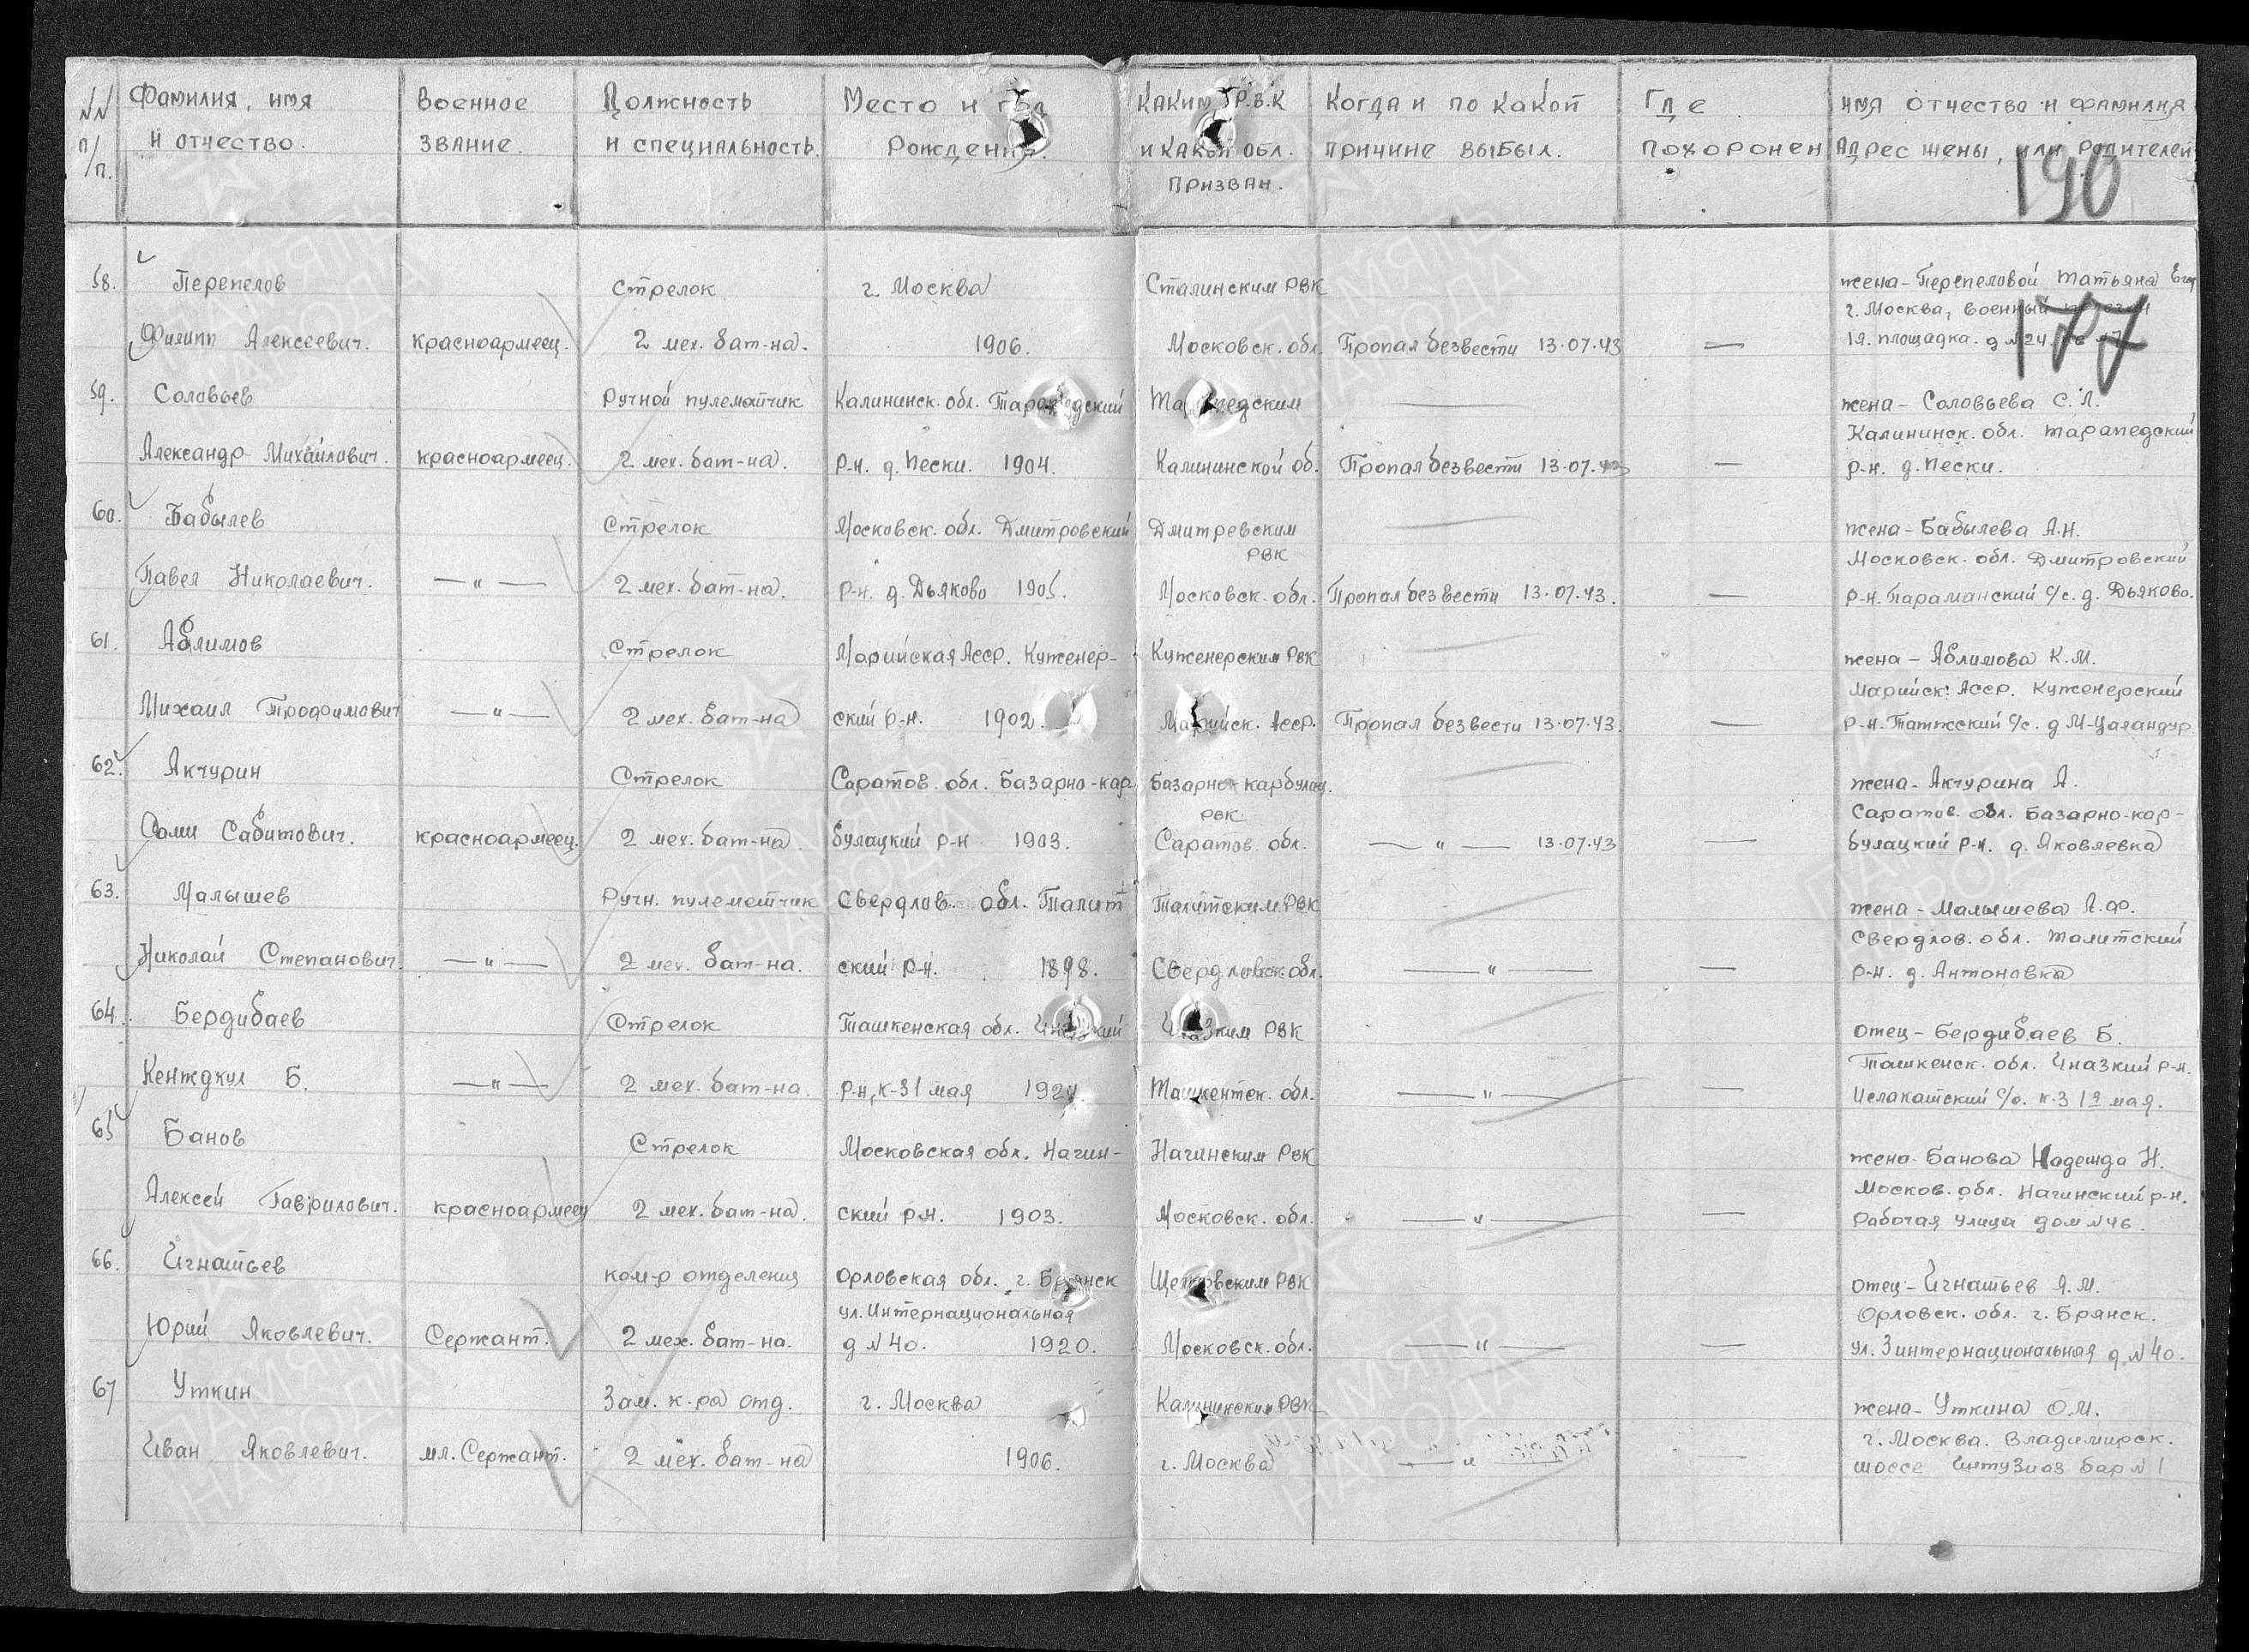 NN Фамилия, имя Военное Должность Место и год Каким Р.В.К Когда и по какой Где имя отчество и фамилия
п/п. и отчество. звание. и специальность. Рождения. и какой обл. причине выбыл. похоронен Адрес жены, или родителей
призван.
190
58. Перепелов Стрелок г. Москва Сталинским РВК жена - Перепеловой Татьяна Егор
г. Москва, Военный
Филипп Алексеевич. красноармеец. 2 мех. бат-на. 1906. Московск. обл. Пропал безвести 13.07.43 — 1я. площадка. д N24
177
59. Соловьев Ручной пулеметчик Калининск. обл. жена - Соловьева С.Л.
Калининск. обл. Тарапедский
Александр Михайлович. красноармеец. 2 мех. бат-на. р-н. д. Пески. 1904. Калининской об. Пропал безвести 13.07.43 — р-н. д. Пески.
60. Бабылев Стрелок Московск. обл. Дмитровский Дмитревским жена - Бабылева А.Н.
РВК Московск. обл. Дмитровский
Павел Николаевич. —"— 2 мех. бат-на. р-н. д. Дьяково 1905. Московск. обл. Пропал безвести 13.07.43. — р-н. Параманский с/с. д. Дьяково.
61. Аблимов Стрелок Марийская Асср. Куженер- Куженерским РВК жена - Аблимова К.М.
Марийск. Асср. Куженерский
Михаил Трофимович —"— 2 мех. бат-на ский р-н. 1902. Марийск. Асср. Пропал безвести 13.07.43. — р-н. с/с. д
62. Акчурин Стрелок Саратов. обл. Базарно-кар Базарно-карбулац. жена - Акчурина А.
РВК Саратов. обл. Базарно-кар-
Сами Сабитович. красноармеец. 2 мех. бат-на. булацкий р-н 1903. Саратов. обл. —"— 13.07.43 — булацкий р-н. д. Яковлевка
63. Малышев Ручн. пулеметчик Свердлов. обл. Талит Талитским РВК жена - Малышева А.Ф.
Свердлов. обл. Талитский
Николай Степанович. —"— 2 мех. бат-на. ский р-н. 1898. Свердловск. обл. —"— — р-н. д. Антоновка
64. Бердибаев Стрелок Ташкенская обл. РВК отец - Бердибаев Б.
Ташкенск. обл. Чназкий р-н.
Кенждкул Б. —"— 2 мех. бат-на. р-н, к-з 1 мая Ташкентск. обл. —"— — с/с. к-з 1я мая.
65 Банов Стрелок Московская обл. Нагин- Нагинским РВК жена - Банова Надежда Н.
Москов. обл. Нагинский р-н.
Алексей Гаврилович. красноармеец 2 мех. бат-на. ский р-н. 1903. Московск. обл. —"— — Рабочая улица дом N46.
66. Игнатьев ком-р отделения Орловская обл. г. Брянск РВК отец - Игнатьев Я.М.
ул. Интернациональная Орловск. обл. г. Брянск.
Юрий Яковлевич. Сержант. 2 мех. бат-на. д N40. 1920. Московск. обл. —"— — ул. 3 интернациональная д. N40.
67 Уткин Зам. к-ра отд. г. Москва Калининским РВК жена - Уткина О.И.
г. Москва. Владимирск.
Иван Яковлевич. мл. Сержант. 2 мех. бат-на 1906. г. Москва —"— — шоссе Ентузиаз бар N1
ПАМЯТЬ НАРОДА